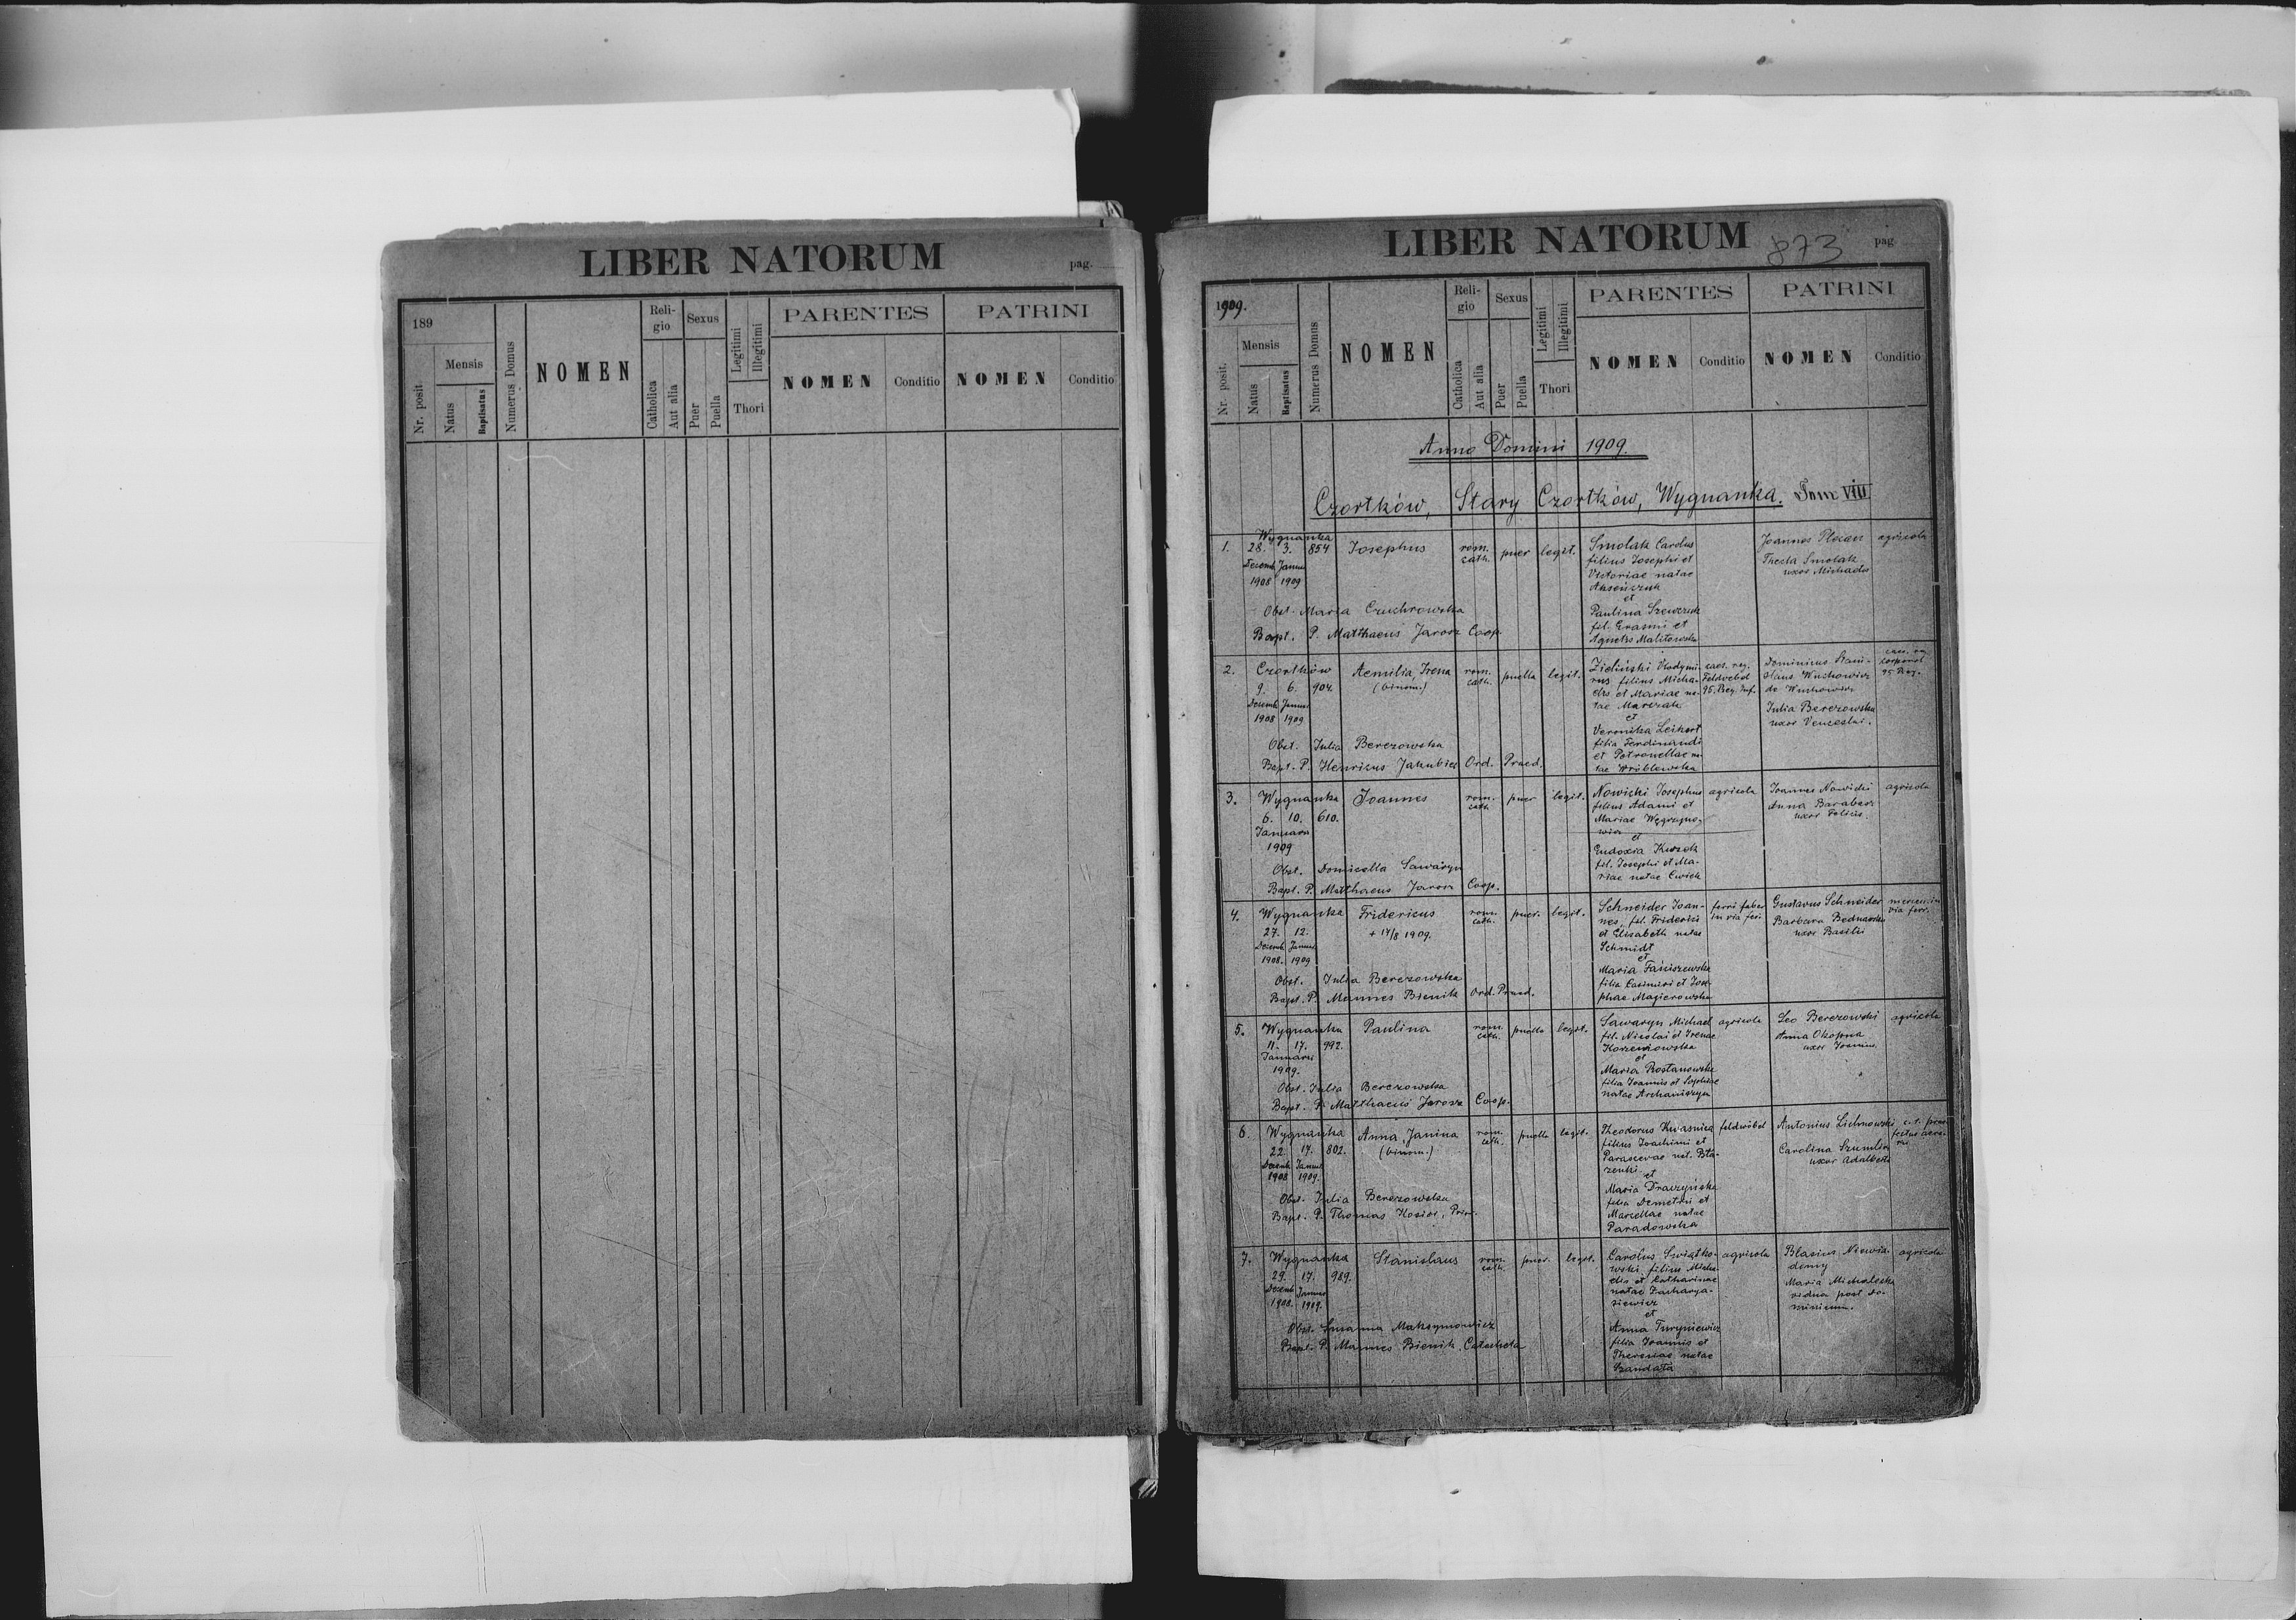 LIBER NATORUM
pag.
189
Nr. posit.
Mensis
Natus
Baptisatus
Numerus Domus
NOMEN
Reli-
gio
Catholica
Aut alia
Sexus
Puer
Puella
Legitimi
Illegitimi
Thori
PARENTES
NOMEN
Conditio
PATRINI
NOMEN
Conditio
LIBER NATORUM
873
pag
1909.
Nr. posit.
Mensis
Natus
Baptisatus
Numerus Domus
NOMEN
Reli-
gio
Catholica
Aut alia
Sexus
Puer
Puella
Legitimi
Illegitimi
Thori
PARENTES
NOMEN
Conditio
PATRINI
NOMEN
Conditio
Anno Domini 1909.
Czortków, Stary Czortków, Wygnanka. Tom VIII
1.
Wygnanka
28. 3. 854
Decemb. Januar
1908 1909
Josephus
rom.
cath.
puer
legit.
Smolak Carolus
filius Josephi et
Victoriae natae
et
Paulina Szewczuk
fil. Erasmi et
Agnetis Malitowska
Joannes
Thecla Smolak
uxor Michaelis
agricola
Obst. Maria Czuchrowska
Bapt. P. Matthaeus Jarosz Coop.
2.
Czortków
9. 6. 904
Decemb. Januar
1908 1909
Aemilia, Irena
(binom.)
rom.
cath.
puella
legit.
Zieliński Vladymi-
rus filius Micha-
elis et Mariae na-
tae Marczak
et
Veronika Leikert
filia Ferdinandi
et Petronellae na-
tae Wróblewska
caes. reg.
Feldvebel
95. Reg. Inf.
Dominicus Stani-
slaus Wuchowicz
de Wuchowicz
Julia Berezowska
uxor Venceslai.
corporal
95 Reg.
Obst. Julia Berezowska
Bapt. P. Henricus Jakubiec Ord. Praed.
3.
Wygnanka
6. 10. 610.
Januari
1909
Joannes
rom.
cath.
puer
legit.
Nowicki Josephus
filius Adami et
Mariae Węgrzyno-
wicz
et
Eudoxia Kurzek
fil. Josephi et Ma-
riae natae Cwiek
agricola
Joannes Nowicki
Anna Barabasz
uxor Felicis.
agricola
Obst. Domicella Sawaryn
Bapt. P. Matthaeus Jarosz Coop.
4.
Wygnanka
27. 12.
Decemb. Januar
1908. 1909
Fridericus
+ 17/8 1909.
rom.
cath.
puer.
legit.
Schneider Joan-
nes, fil. Friderici
et Elisabeth natae
Schmidt
et
Maria Faniszewska
filia Casimiri et Jose-
phae Magierowska
ferri faber
in via fer.
Gustavus Schneider
Barbara Bednarska
uxor Basilii
via ferr.
Obst. Julia Berezowska
Bapt. P. Mannes Bienik Ord. Praed.
5.
Wygnanka
11. 17. 992.
Januari
1909.
Paulina
rom.
cath.
puella
legit.
Sawaryn Michael
fil. Nicolai et Irenae
Korzeniowska
et
Maria Rostanowska
filia Joannis et Sophiae
natae Archaniszyn
agricola
Leo Berezowski
Anna Okopna
uxor Joannis
agricola
Obst. Julia Berezowska
Bapt. P. Matthaeus Jarosz Coop.
6.
Wygnanka
22. 17. 802.
Decemb. Januar
1908 1909.
Anna, Janina
(binom.)
rom.
cath.
puella
legit.
Theodorus Kwasnica
filius Joachimi et
Parascevae nat. Bła-
zenki
et
Maria Draczyńska
filia Demetrii et
Marcellae natae
Paradowska
feldwebel
Antonius Lichnowski
Carolina Szumlin
uxor Adalberti
Obst. Julia Berezowska
Bapt. P. Thomas Kosior, Prior.
7.
Wygnanka
29. 17. 989.
Decemb. Januar
1908. 1909.
Stanislaus
rom.
cath.
puer.
legit.
Carolus Swiątko-
wski, filius Micha-
elis et Catharinae
natae Zacharya-
siewicz
et
Anna Turyniewicz
filia Joannis et
Theresiae natae
Szandata
agricola
Blasius Niewia-
domy
Maria Michalecka
vidua post Do-
minicum.
agricola
Obst. Maksymowicz
Bapt. P. Mannes Bienik, Catecheta